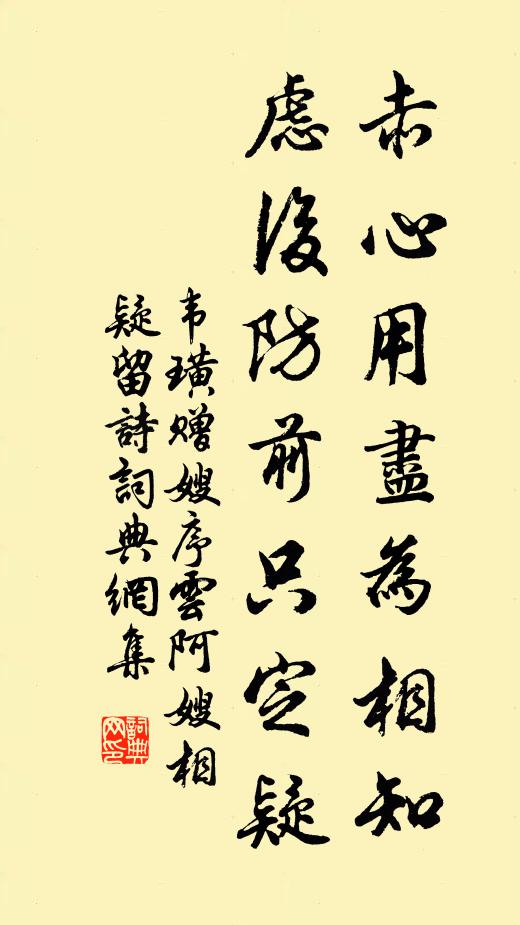 赤心用盡為相知
慮後防前只定疑
韦璜赠嫂序雲阿嫂相
疑留詩詞典網集
詞典
网印